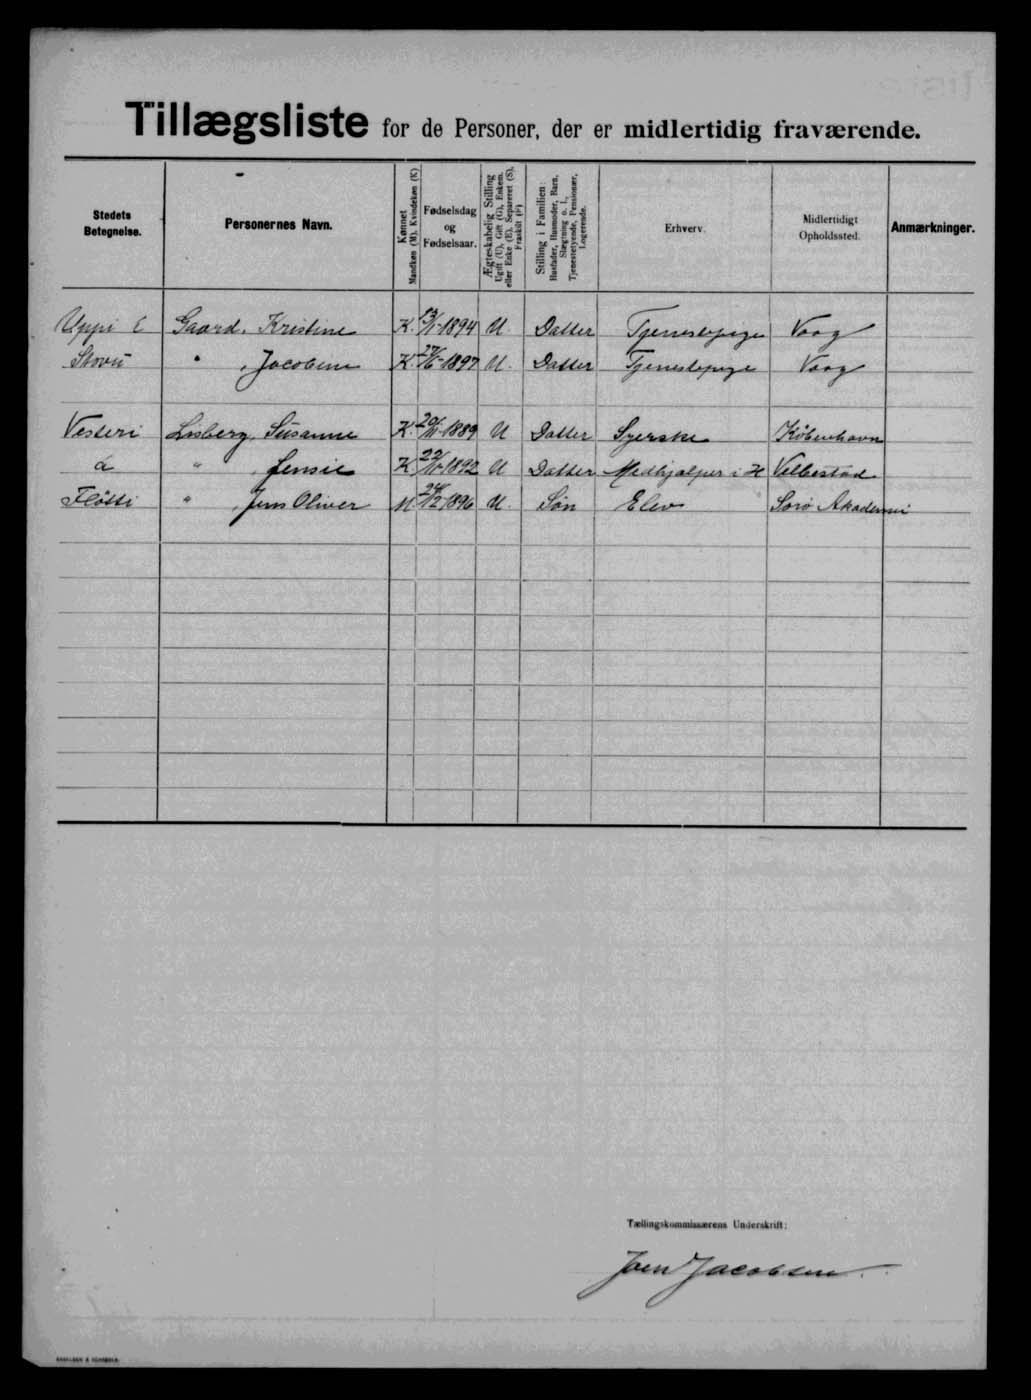 Tillægsliste for de Personer, der er midlertidig fraværende.
Stedets Betegnelse.
Personernes Navn.
Kønnet
Mandkøn (M), Kvindekøn (K)
Fødselsdag og Fødselsaar.
Ægteskabelig Stilling
Ugift (U), Gift (G), Enkem. eller Enke (E), Separeret (S), Fraskilt (F)
Stilling i Familien:
Husfader, Husmoder, Barn, Slægtning o. l., Tjenestetyende, Pensionær, Logerende.
Erhverv.
Midlertidigt Opholdssted.
Anmærkninger.
Uppi í Gaard, Kristine K. 1894 U. Datter Tjenestepige Vaag
Stovu " , Jacobine K. 1897 U. Datter Tjenestepige Vaag
Vesteri Lisberg, Susanne K. 1889 U Datter Syerske København
á " , Jensie K. 1892 U Datter Medhjælper i H Velbestad
Fløtti " , Jens Oliver M. 1896 U. Søn Elev Sorø Akademi
Tællingskommissærens Underskrift:
Joen Jacobsen